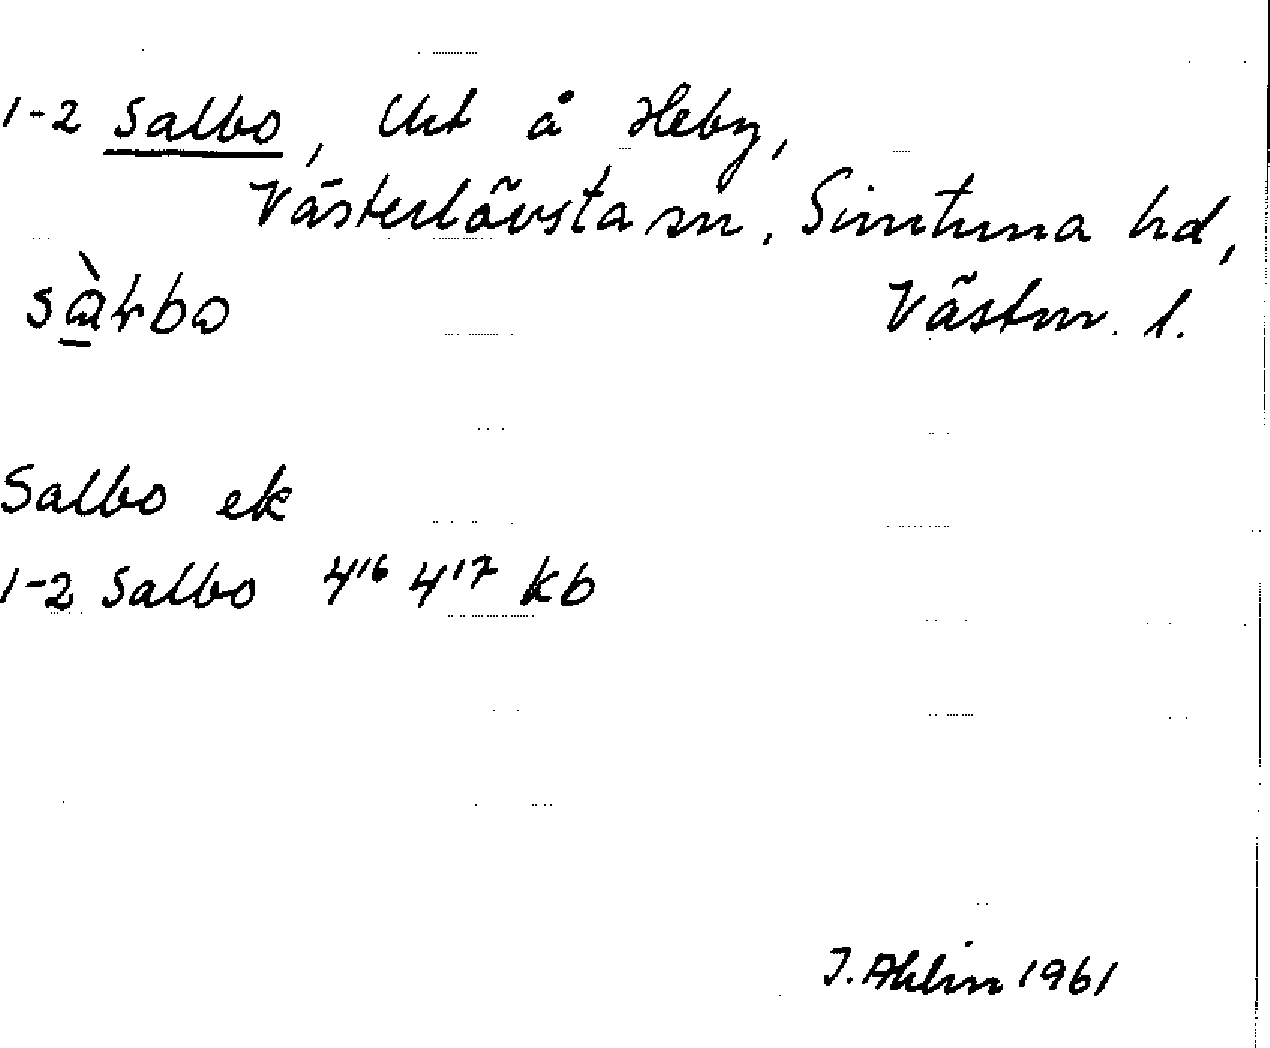 1-2 Salbo, Utt å Heby,
Västerlövsta sn, Simtuna hd,
Västm. l.
Salbo ek
1-2 Salbo 4¹⁶ 4¹⁷ kb
J. Ahlin 1961